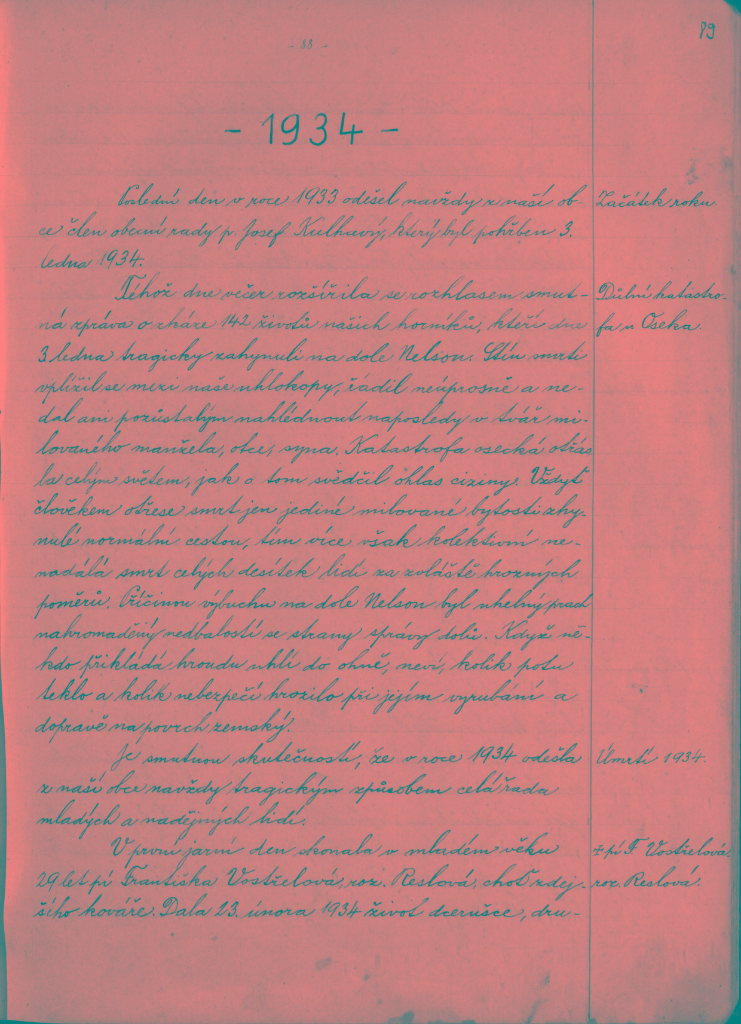 - 88 -
89
- 1934 -
Poslední den v roce 1933 odešel navždy z naší ob-
ce člen obecní rady p. Josef Kulhavý, který byl pohřben 3.
ledna 1934.
Začátek roku.
Téhož dne večer rozšířila se rozhlasem smut-
ná zpráva o zkáze 142 životů našich horníků, kteří dne
3. ledna tragicky zahynuli na dole Nelson. Stín smrti
vplížil se mezi naše uhlokopy, řádil neúprosně a ne-
dal ani pozůstalým nahlédnout naposledy v tvář mi-
lovaného manžela, otce, syna. Katastrofa osecká otřás
la celým světem, jak o tom svědčil ohlas ciziny. Vždyť
člověkem otřese smrt jen jediné milované bytosti zhy-
nulé normální cestou, tím více však kolektivní ne-
nadálá smrt celých desítek lidí za zvláště hrozných
poměrů. Příčinou výbuchu na dole Nelson byl uhelný prach
nahromaděný nedbalostí se strany správy dolů. Když ně-
kdo přikládá hroudu uhlí do ohně, neví, kolik potu
teklo a kolik nebezpečí hrozilo při jejím vyrubání a
dopravě na povrch zemský!
Důlní katastro-
fa u Oseka.
Je smutnou skutečností, že v roce 1934 odešla
z naší obce navždy tragickým způsobem celá řada
mladých a nadějných lidí.
Úmrtí 1934.
V první jarní den skonala v mladém věku
29 let pí Františka Vostřelová, roz. Reslová, choť zdej-
šího kováře. Dala 23. února 1934 život dcerušce, dru-
‡ pí F. Vostřelová
roz. Reslová.